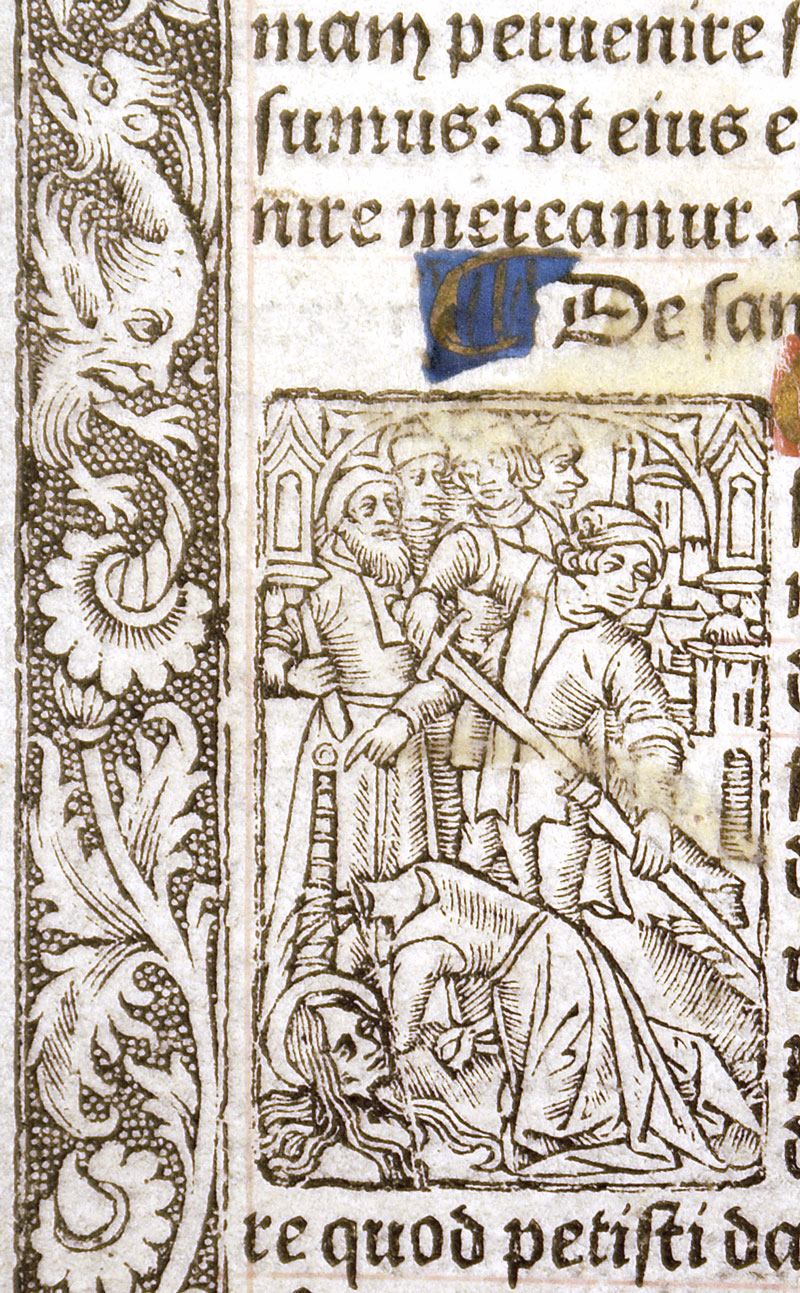 mam peruenire s
sumus: Vt eius e
nire mereamur.
C De san
re quod petisti da